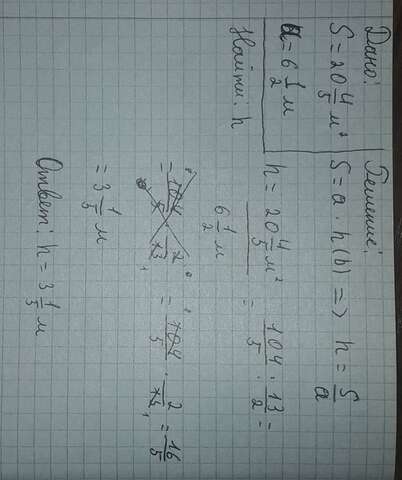 Дано:
S = 20 4/5 м²
a = 6 1/2 м
Найти: h
Решение:
S = a · h(b) => h = S/a
h = 20 4/5 м² / 6 1/2 м = 104/5 : 13/2 =
= 104/5 · 2/13 = 16/5
= 3 1/5 м
Ответ: h = 3 1/5 м